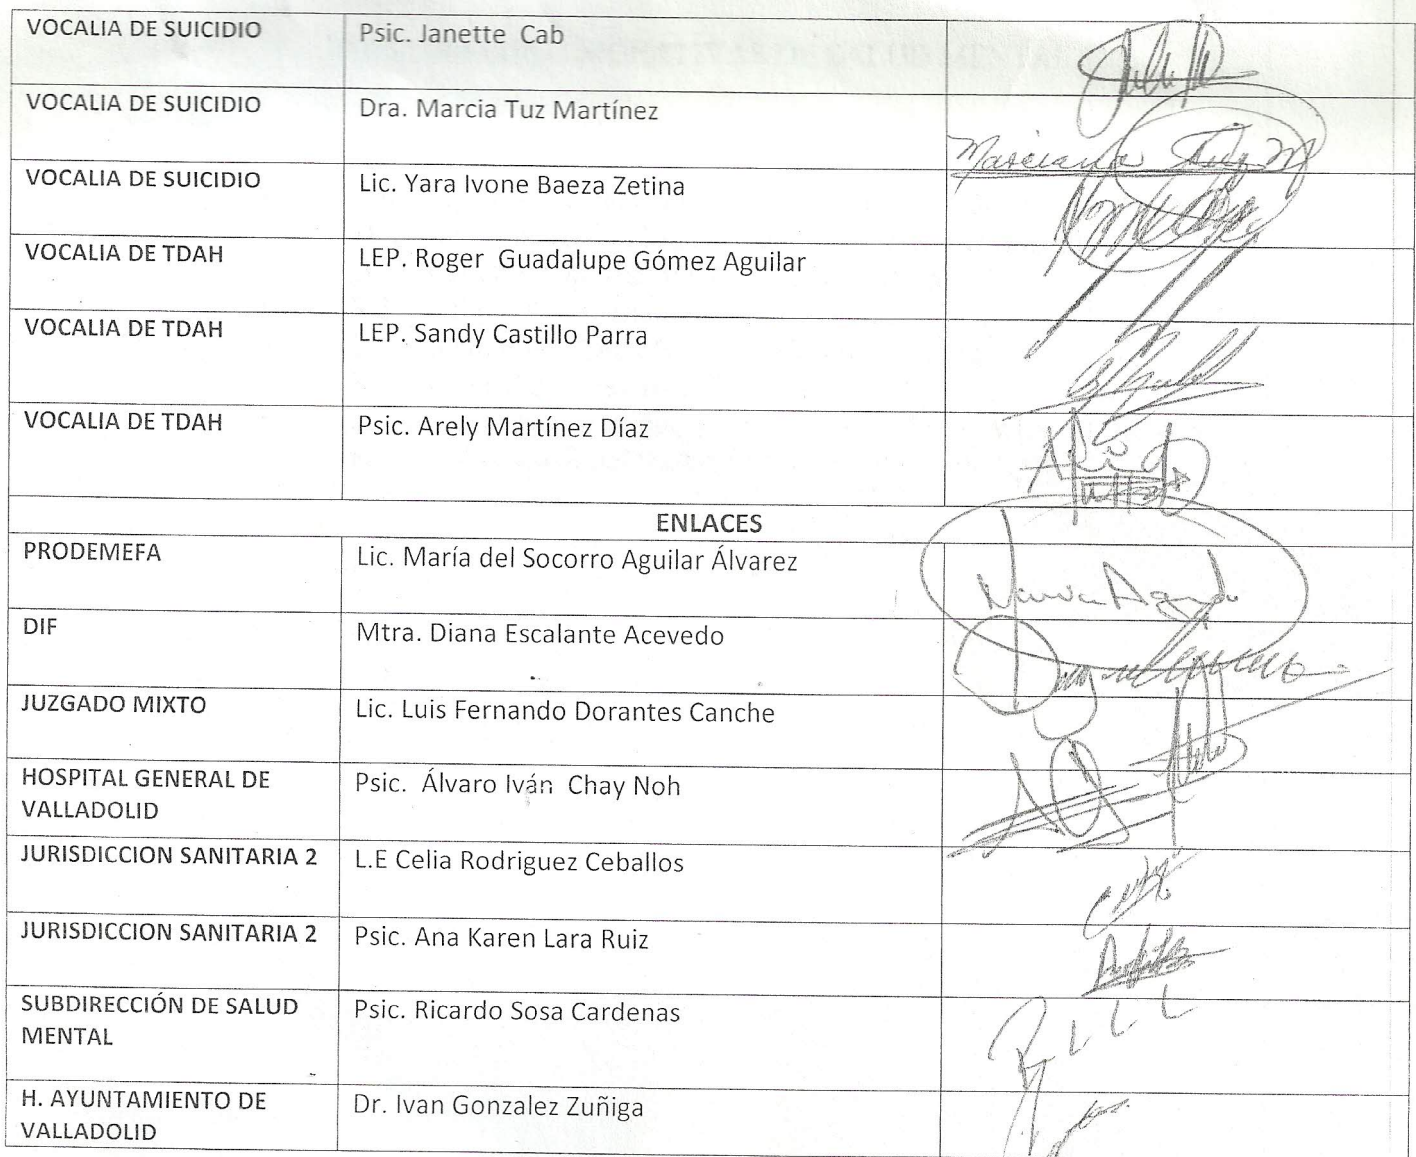 VOCALIA DE SUICIDIO Psic. Janette Cab
VOCALIA DE SUICIDIO Dra. Marcia Tuz Martínez
Marciana Tuz M
VOCALIA DE SUICIDIO Lic. Yara Ivone Baeza Zetina
VOCALIA DE TDAH LEP. Roger Guadalupe Gómez Aguilar
VOCALIA DE TDAH LEP. Sandy Castillo Parra
VOCALIA DE TDAH Psic. Arely Martínez Díaz
ENLACES
PRODEMEFA Lic. María del Socorro Aguilar Álvarez
DIF Mtra. Diana Escalante Acevedo
JUZGADO MIXTO Lic. Luis Fernando Dorantes Canche
HOSPITAL GENERAL DE Psic. Álvaro Iván Chay Noh
VALLADOLID
JURISDICCION SANITARIA 2 L.E Celia Rodriguez Ceballos
JURISDICCION SANITARIA 2 Psic. Ana Karen Lara Ruiz
SUBDIRECCIÓN DE SALUD Psic. Ricardo Sosa Cardenas
MENTAL
H. AYUNTAMIENTO DE Dr. Ivan Gonzalez Zuñiga
VALLADOLID